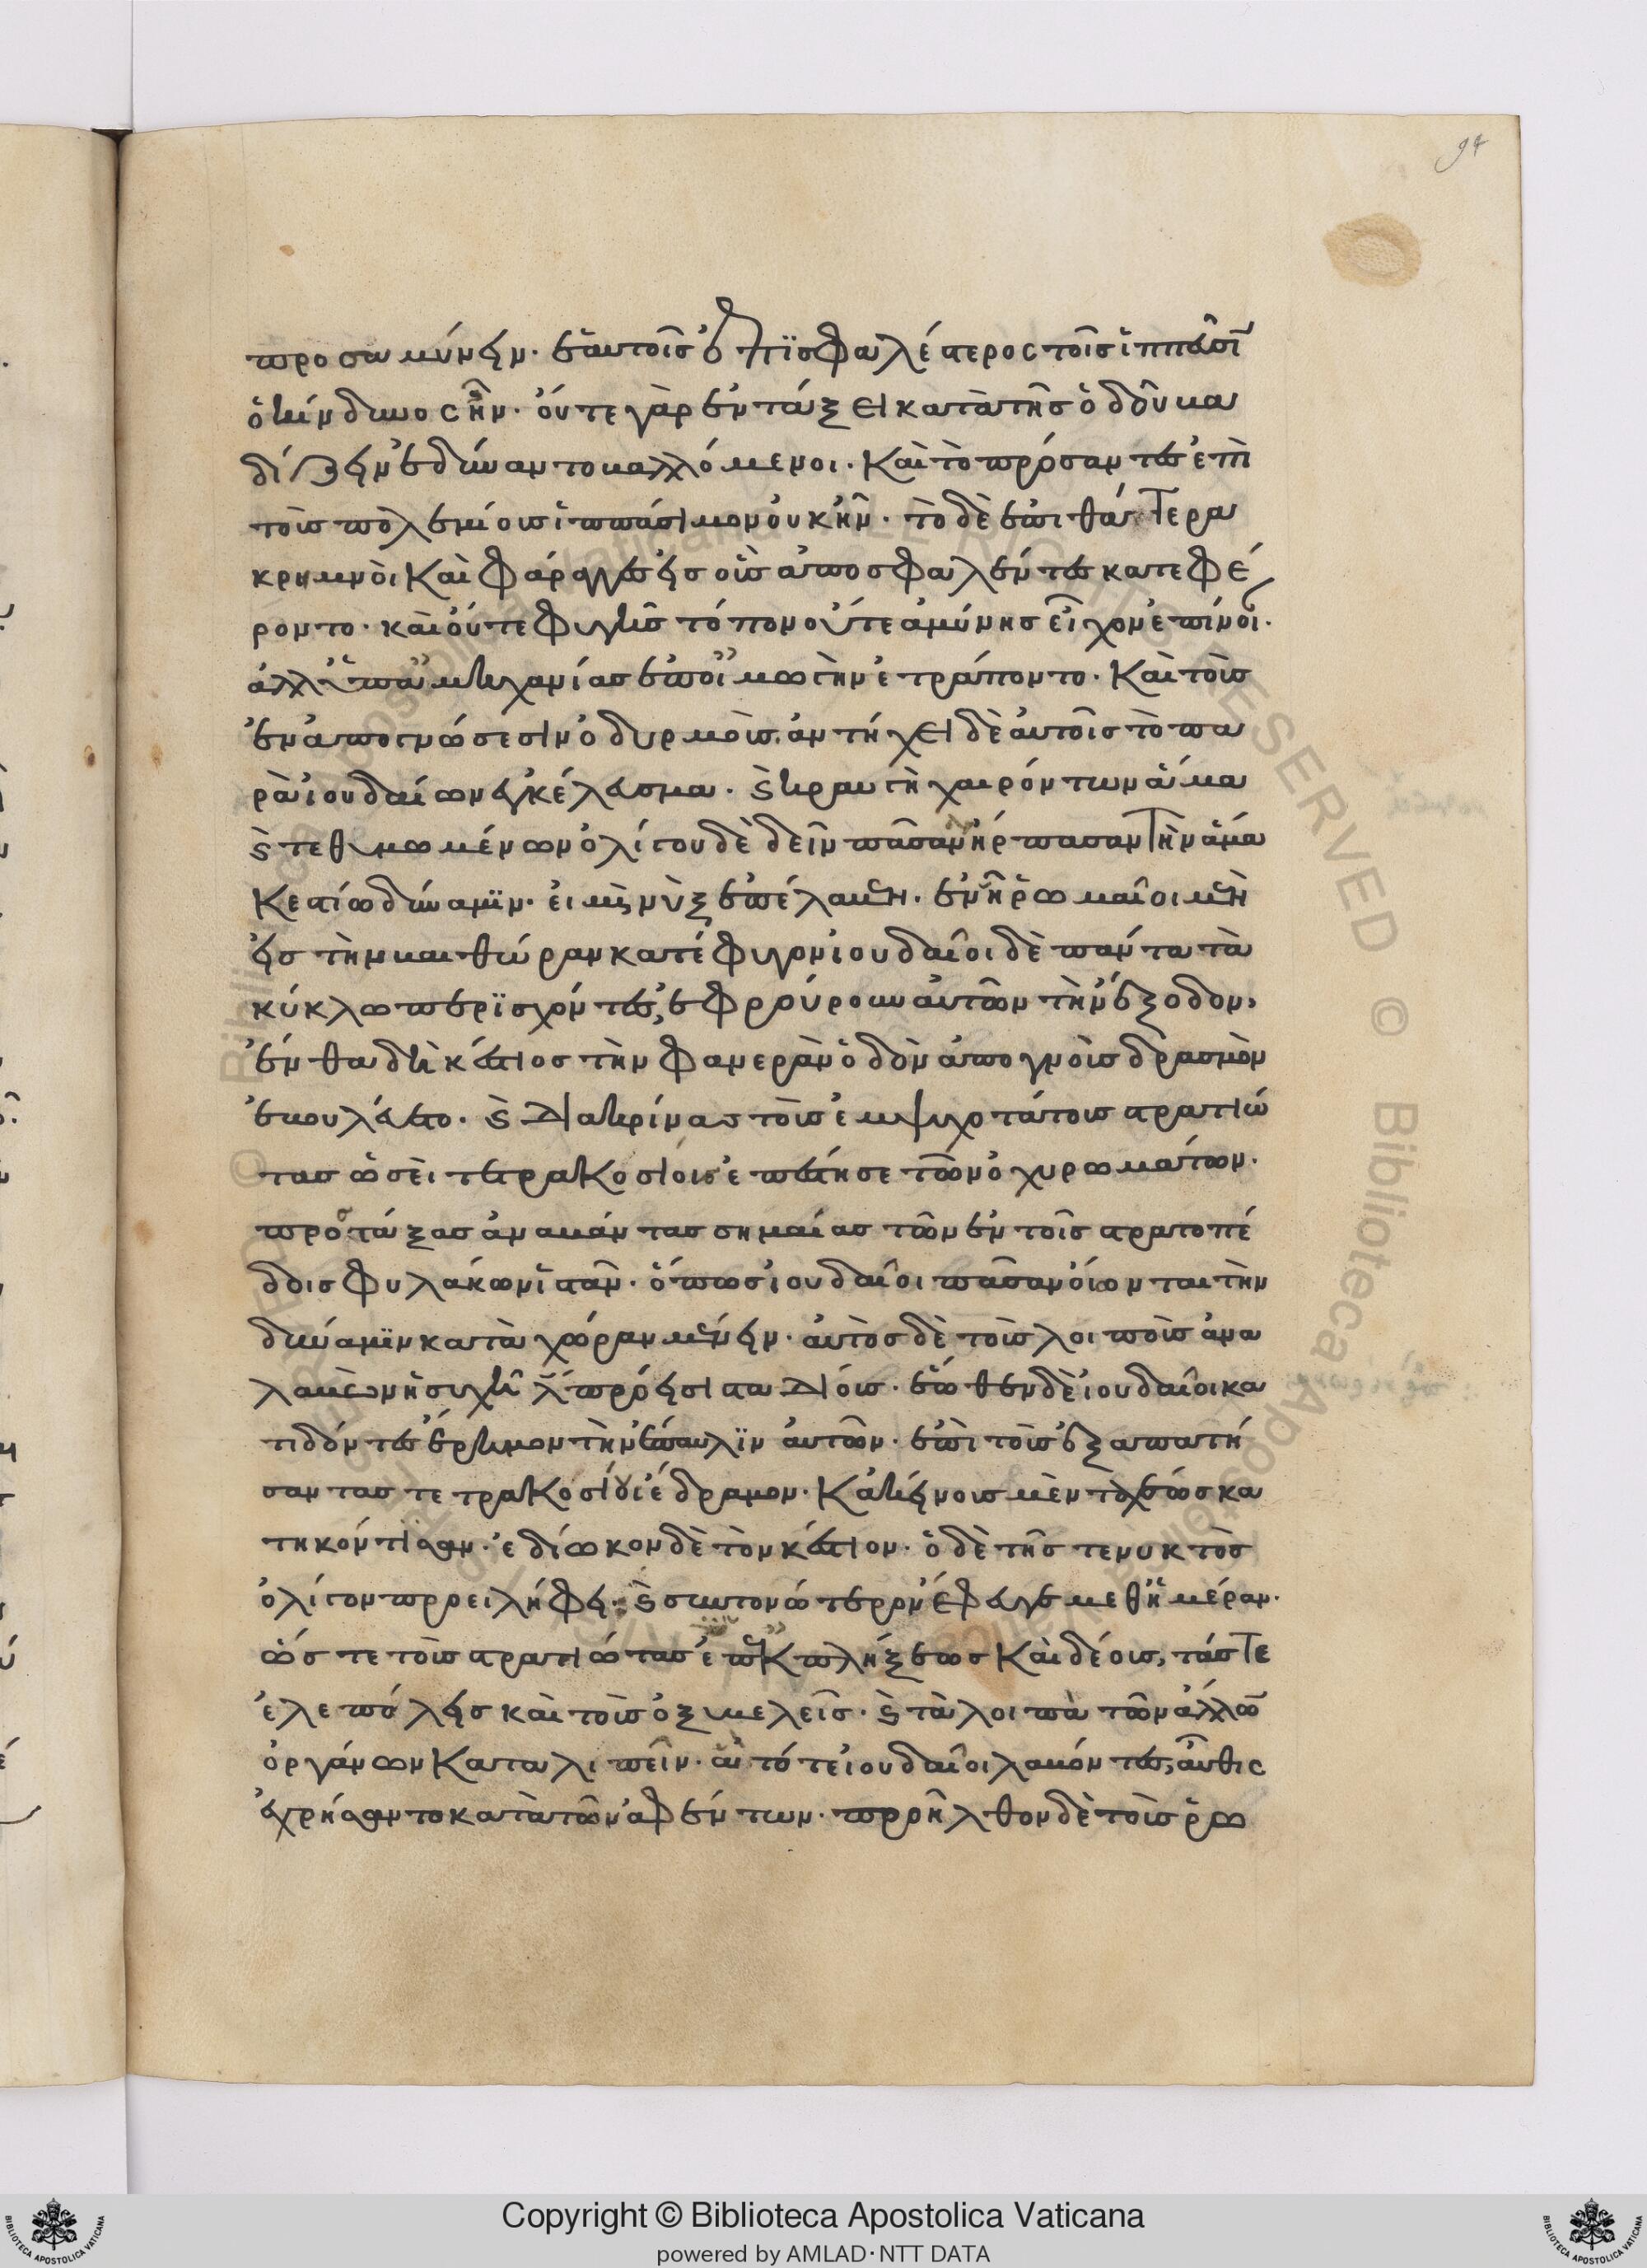 προσαμύνειν· ἐν αὐτοῖς ὁ ἐπισφαλέστερος τοῖς ἱππεῦσι
ὁ κίνδυνος ἦν· οὔτε γὰρ ἐν τάξει κατὰ τῆς ὁδοῦ βα
δίζειν ἐδύναντο βαλλόμενοι· καὶ τὸ πρόσαντες ἐπὶ
τοὺς πολεμίους ἱππάσιμον οὐκ ἦν· τὸ δὲ ἐπι θάτερα
κρημνοὶ καὶ φάραγγες εἰς οὓς ἀποσφαλέντες κατεφέ
ροντο· καὶ οὔτε φυγῆς τόπον οὔτε ἀμύνης εἶχον ἐπίνοι·
ἀλλ' ὑπ' ἀμηχανίας ἐπ' οἰμωγὴν ἐτράποντο· καὶ τοὺς
ἐν ἀπογνώσεσιν ὀδυρμούς· ἀντήχει δὲ αὐτοῖς τὸ πα
ρὰ ἰουδαίων ἐγκέλευσμα· καὶ κραυγὴ χαιρόντων ἅμα
καὶ τεθυμωμένων ὀλίγου δὲ δεῖν πᾶσαν ἥρπασαν τὴν ἅμα
Κεστίω δύναμιν· εἰ μὴ νὺξ ἐπέλαβεν· ἐν ἧ ῥωμαῖοι μὲν
εἰς τὴν βαιθώραν κατέφυγον ἰουδαῖοι δὲ πάντα τὰ
κύκλω περισχόντες, ἐφρούρουν αὐτῶν τὴν ἔξοδον,
ἔνθα δὴ κέστιος τὴν φανερὰν ὁδὸν ἀπογνοὺς δρασμὸν
ἐβουλεύετο· καὶ διακρίνας τοὺς εὐψυχοτάτους στρατιώ
τας ὡσεὶ τετρακοσίους ἐπέστησε τῶν ὀχυρωμάτων·
προστάξας ἀναβάντας σημαίας τῶν ἐν τοῖς στρατοπέ
δοις φυλάκων ἱστᾶν· ὅπως ἰουδαῖοι πᾶσαν οἴωνται τὴν
δύναμιν κατὰ χώραν μένειν· αὐτὸς δὲ τοὺς λοιποὺς ἀνα
λαβὼν ἡσυχῆ λ πρόεισι σταδίους· ἕωθεν δὲ ἰουδαῖοι κα
τιδόντες ἔρημον τὴν ἔπαυλιν αὐτῶν· ἐπὶ τοὺς ἐξαπατή
σαντας τετρακοσίους ἔδραμον· κἀκείνους μὲν ταχέως κα
τηκόντισαν· ἐδίωκον δὲ τὸν κέστιον· ὁ δὲ τῆς τε νυκτὸς
ὀλίγον προειλήφει· καὶ συντονώτερον ἔφευγε μεθ' ἡμέραν·
ὥστε τοὺς στρατιώτας ἐπ' ἐκπλήξεως καὶ δέους, τάς τε
ἑλεπόλεις καὶ τοὺς ὀξυβελεῖς· καὶ τὰ λοιπὰ τῶν ἄλλων
ὀργάνων καταλιπεῖν· ἃ τότε ἰουδαῖοι λαβόντες, αὖθις
ἐχρήσαντο κατὰ τῶν ἀφέντων· προῆλθον δὲ τοὺς ῥω
94
Copyright © Biblioteca Apostolica Vaticana
powered by AMLAD·NTT DATA